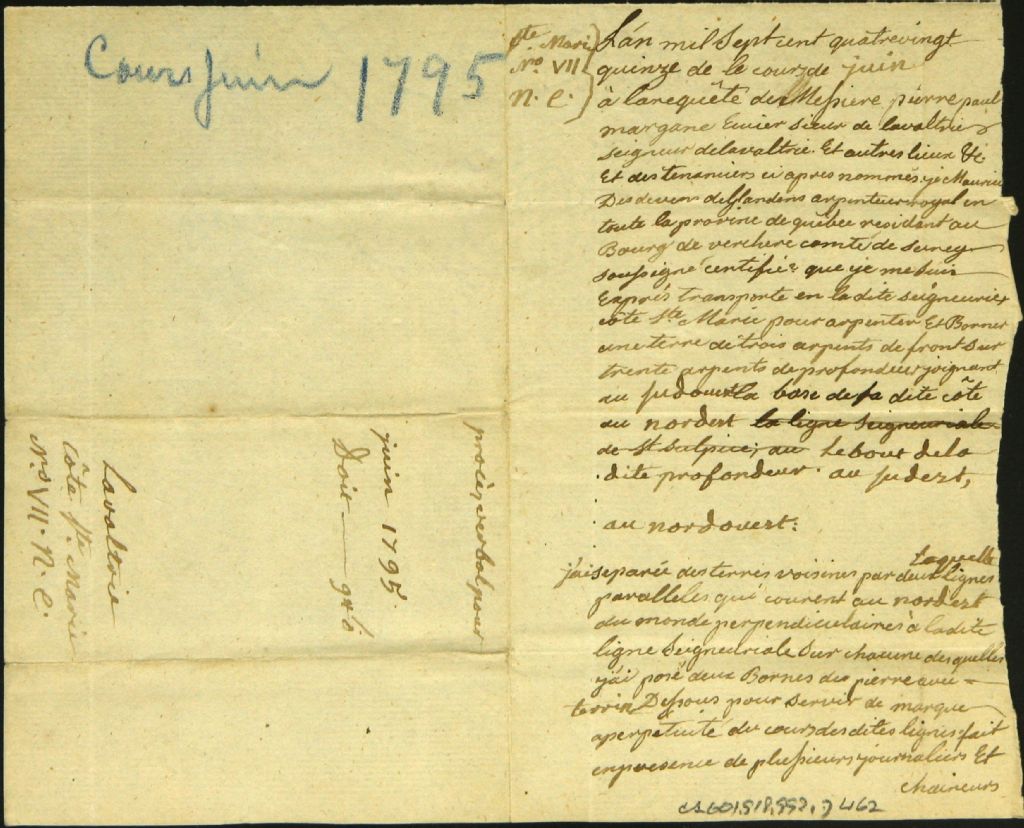 Cours Juin 1795
Ste Mari
No. VII
N. C.
L'an mil Sept cent quatrevingt
quinze de le cours de juin
à la requête de Messiere pierre paul
margane Ecuier sieur de lavaltrie
seigneur de lavaltrie. Et autres lieux &c
Et des tenanciers ci apres nommés. je Maurice
Desdevens de Glandons arpenteur royal en
toute la province de quebec residant au
Bourg de verchere comté de surrey
soussigné certifie que je me suis
Exprés transporté en la dite seigneurie
côte Ste Marie pour arpenter Et Borner
une terre de trois arpents de front sur
trente arpents de profondeur joignant
au sudouest la base de la dite côte
au nordest la ligne seigneuriale
de St Sulpice, au Le bout de la
dite profondeur. au sudest,
au nordouest:
Laquelle
j'ai separée des terres voisines par deux lignes
paralleles qui courent au nordest
du monde perpendiculaires à la dite
ligne Seigneuriale Sur chacune des quelles
j'ai posé deux Bornes de pierre avec
terrin Dessous pour servir de marque
a perpetuité du cours des dites lignes. fait
en presence de plusieurs journaliers Et
chaineurs
procès verbal pour
juin 1795.
Doit
Lavaltrie
côte Ste Marie
No VII. N. C.